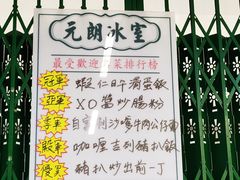 元朗冰室
最受歡迎菜排行榜
冠軍 蝦仁日牛滑蛋飯
亞軍 XO醬炒腸粉
季軍 自家制沙嗲牛肉公仔麵
殿軍 咖喱吉列豬扒飯
優異 豬扒炒出前一丁